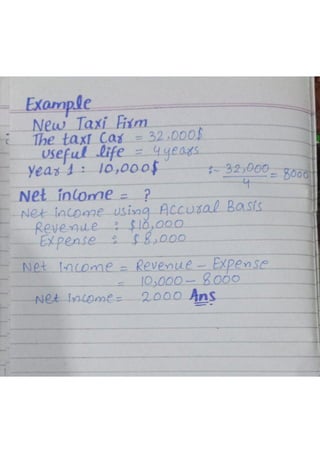 Example
New Taxi Firm
The taxi Car = 32,000$
useful life = 4 years
Year 1 : 10,000$ :- 32,000/4 = 8000
Net income = ?
Net income using Accural Basis
Revenue : $10,000
Expense : $8,000
Net Income = Revenue - Expense
= 10,000 - 8000
Net Income = 2000 Ans